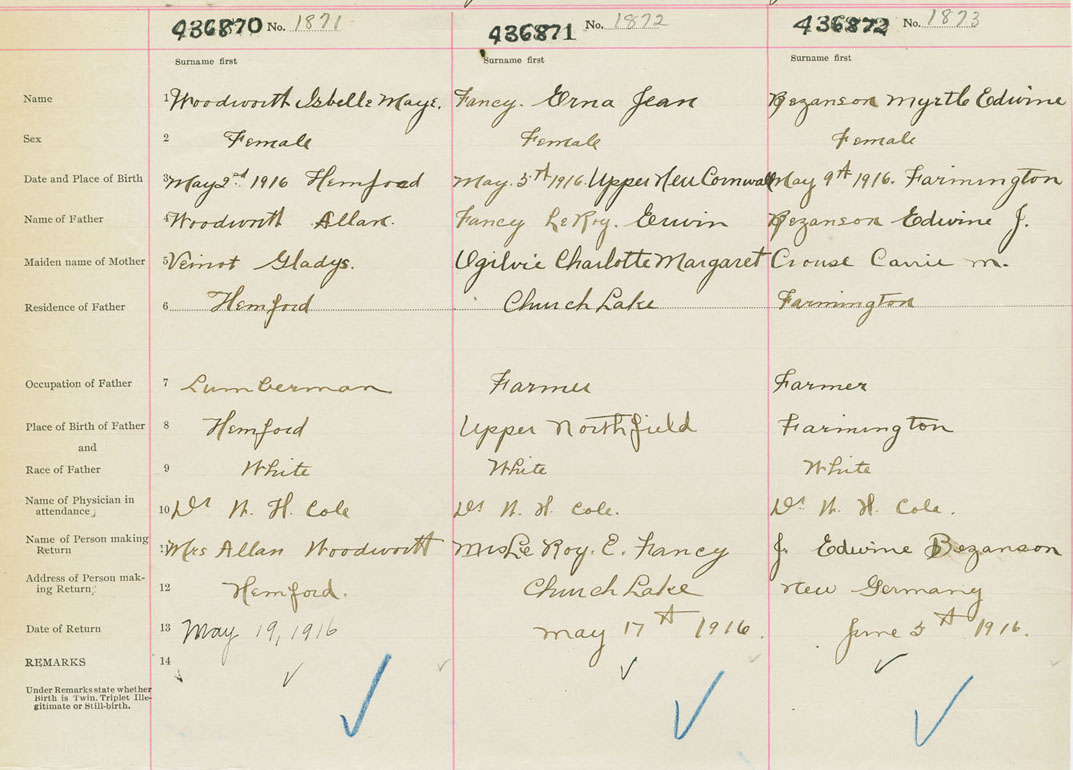 436870 No. 1871 436871 No. 1872 436872 No. 1873
Surname first Surname first Surname first
Name 1 Woodworth Isbelle Maye. Fancy. Erna Jean Bezanson Myrtle Edwine
Sex 2 Female Female Female
Date and Place of Birth 3 May 2nd 1916 Hemford May. 5th 1916. Upper New Cornwall May 9th 1916. Farmington
Name of Father 4 Woodworth Allan. Fancy LeRoy. Erwin Bezanson Edwine J.
Maiden name of Mother 5 Veinot Gladys. Ogilvie Charlotte Margaret Crouse Carrie M.
Residence of Father 6 Hemford Church Lake Farmington
Occupation of Father 7 Lumberman Farmer Farmer
Place of Birth of Father 8 Hemford Upper Northfield Farmington
and
Race of Father 9 White White White
Name of Physician in
attendance 10 Dr W. H. Cole Dr W. H. Cole. Dr W. H. Cole.
Name of Person making
Return 11 Mrs Allan Woodworth Mrs Le Roy. E. Fancy J. Edwine Bezanson
Address of Person mak-
ing Return 12 Hemford. Church Lake New Germany
Date of Return 13 May 19, 1916 May 17th 1916. June 5th 1916.
REMARKS 14
Under Remarks state whether
Birth is Twin. Triplet Ille-
gitimate or Still-birth.